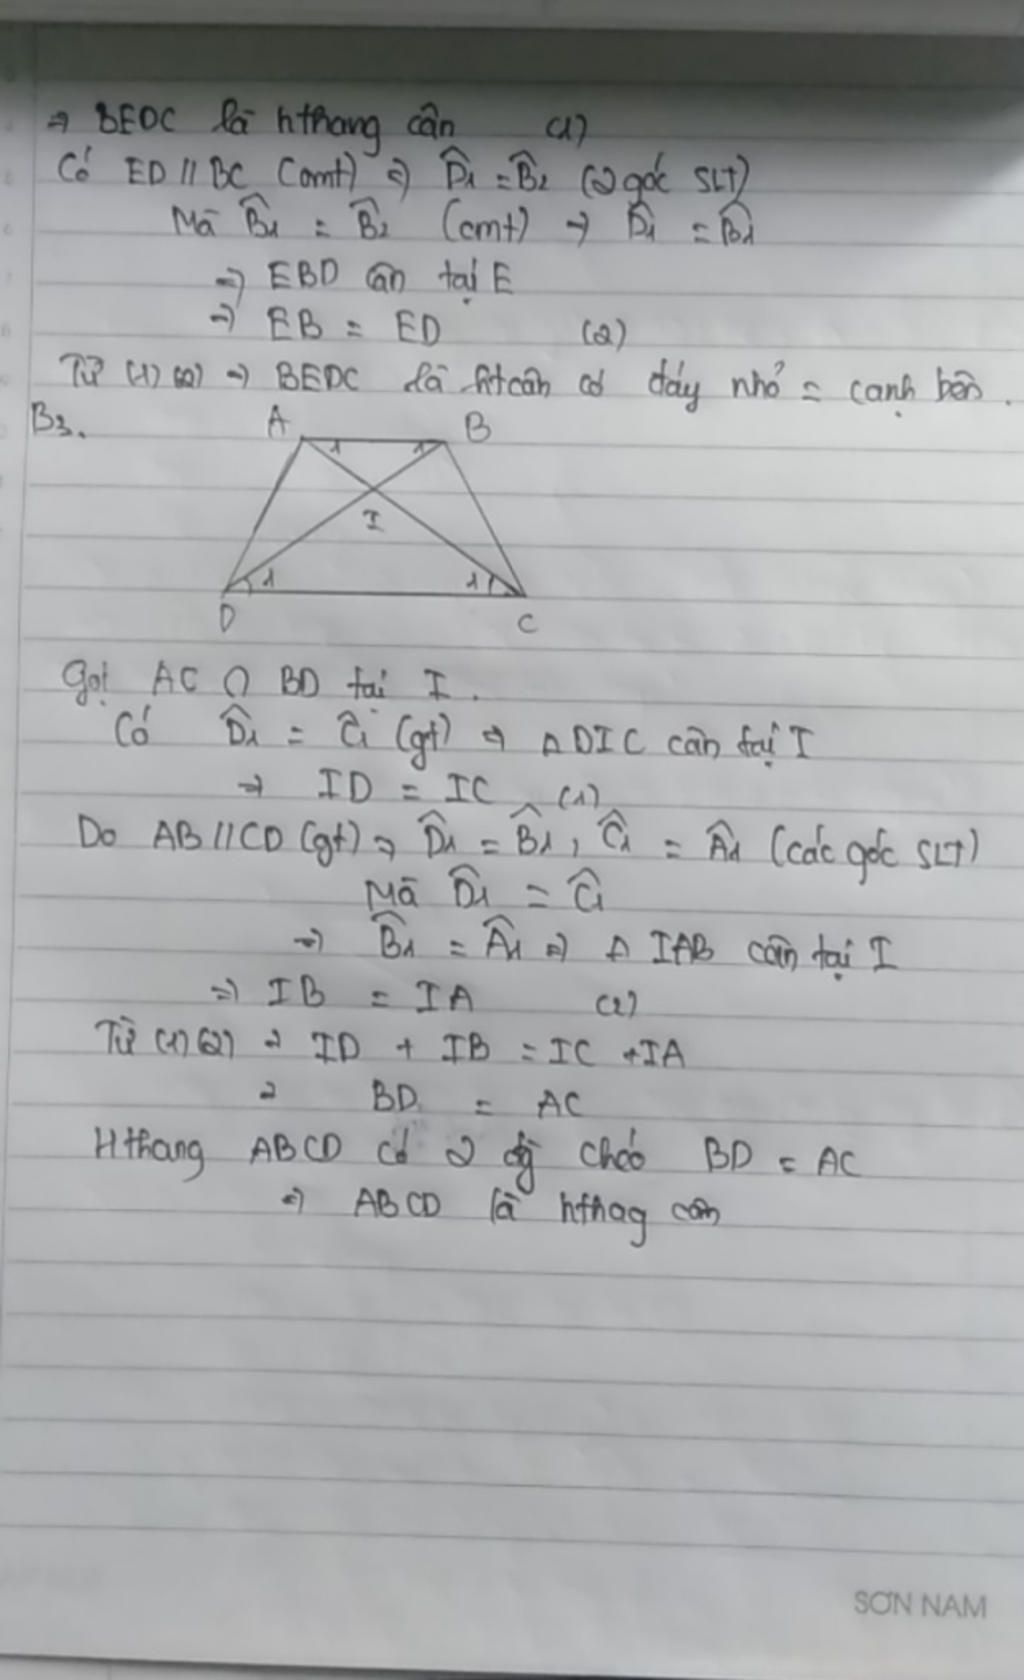 ⇒ BEDC là hthang cân (1)
Có ED // BC (cmt) ⇒ D̂₁ = B̂₂ (2 góc SLT)
Mà B̂₁ = B̂₂ (cmt) → D̂₁ = B̂₁
⇒ EBD cân tại E
⇒ EB = ED (2)
Từ (1) (2) ⇒ BEDC là htcân có đáy nhỏ = cạnh bên.
B3.
A B
1 1
I
1 1
D C
Gọi AC ∩ BD tại I.
Có D̂₁ = Ĉ₁ (gt) ⇒ Δ DIC cân tại I
⇒ ID = IC (1)
Do AB // CD (gt) ⇒ D̂₁ = B̂₁, Ĉ₁ = Â₁ (các góc SLT)
Mà D̂₁ = Ĉ₁
⇒ B̂₁ = Â₁ ⇒ Δ IAB cân tại I
⇒ IB = IA (2)
Từ (1) (2) ⇒ ID + IB = IC + IA
⇒ BD = AC
Hthang ABCD có 2 đg chéo BD = AC
⇒ ABCD là hthag cân
SƠN NAM